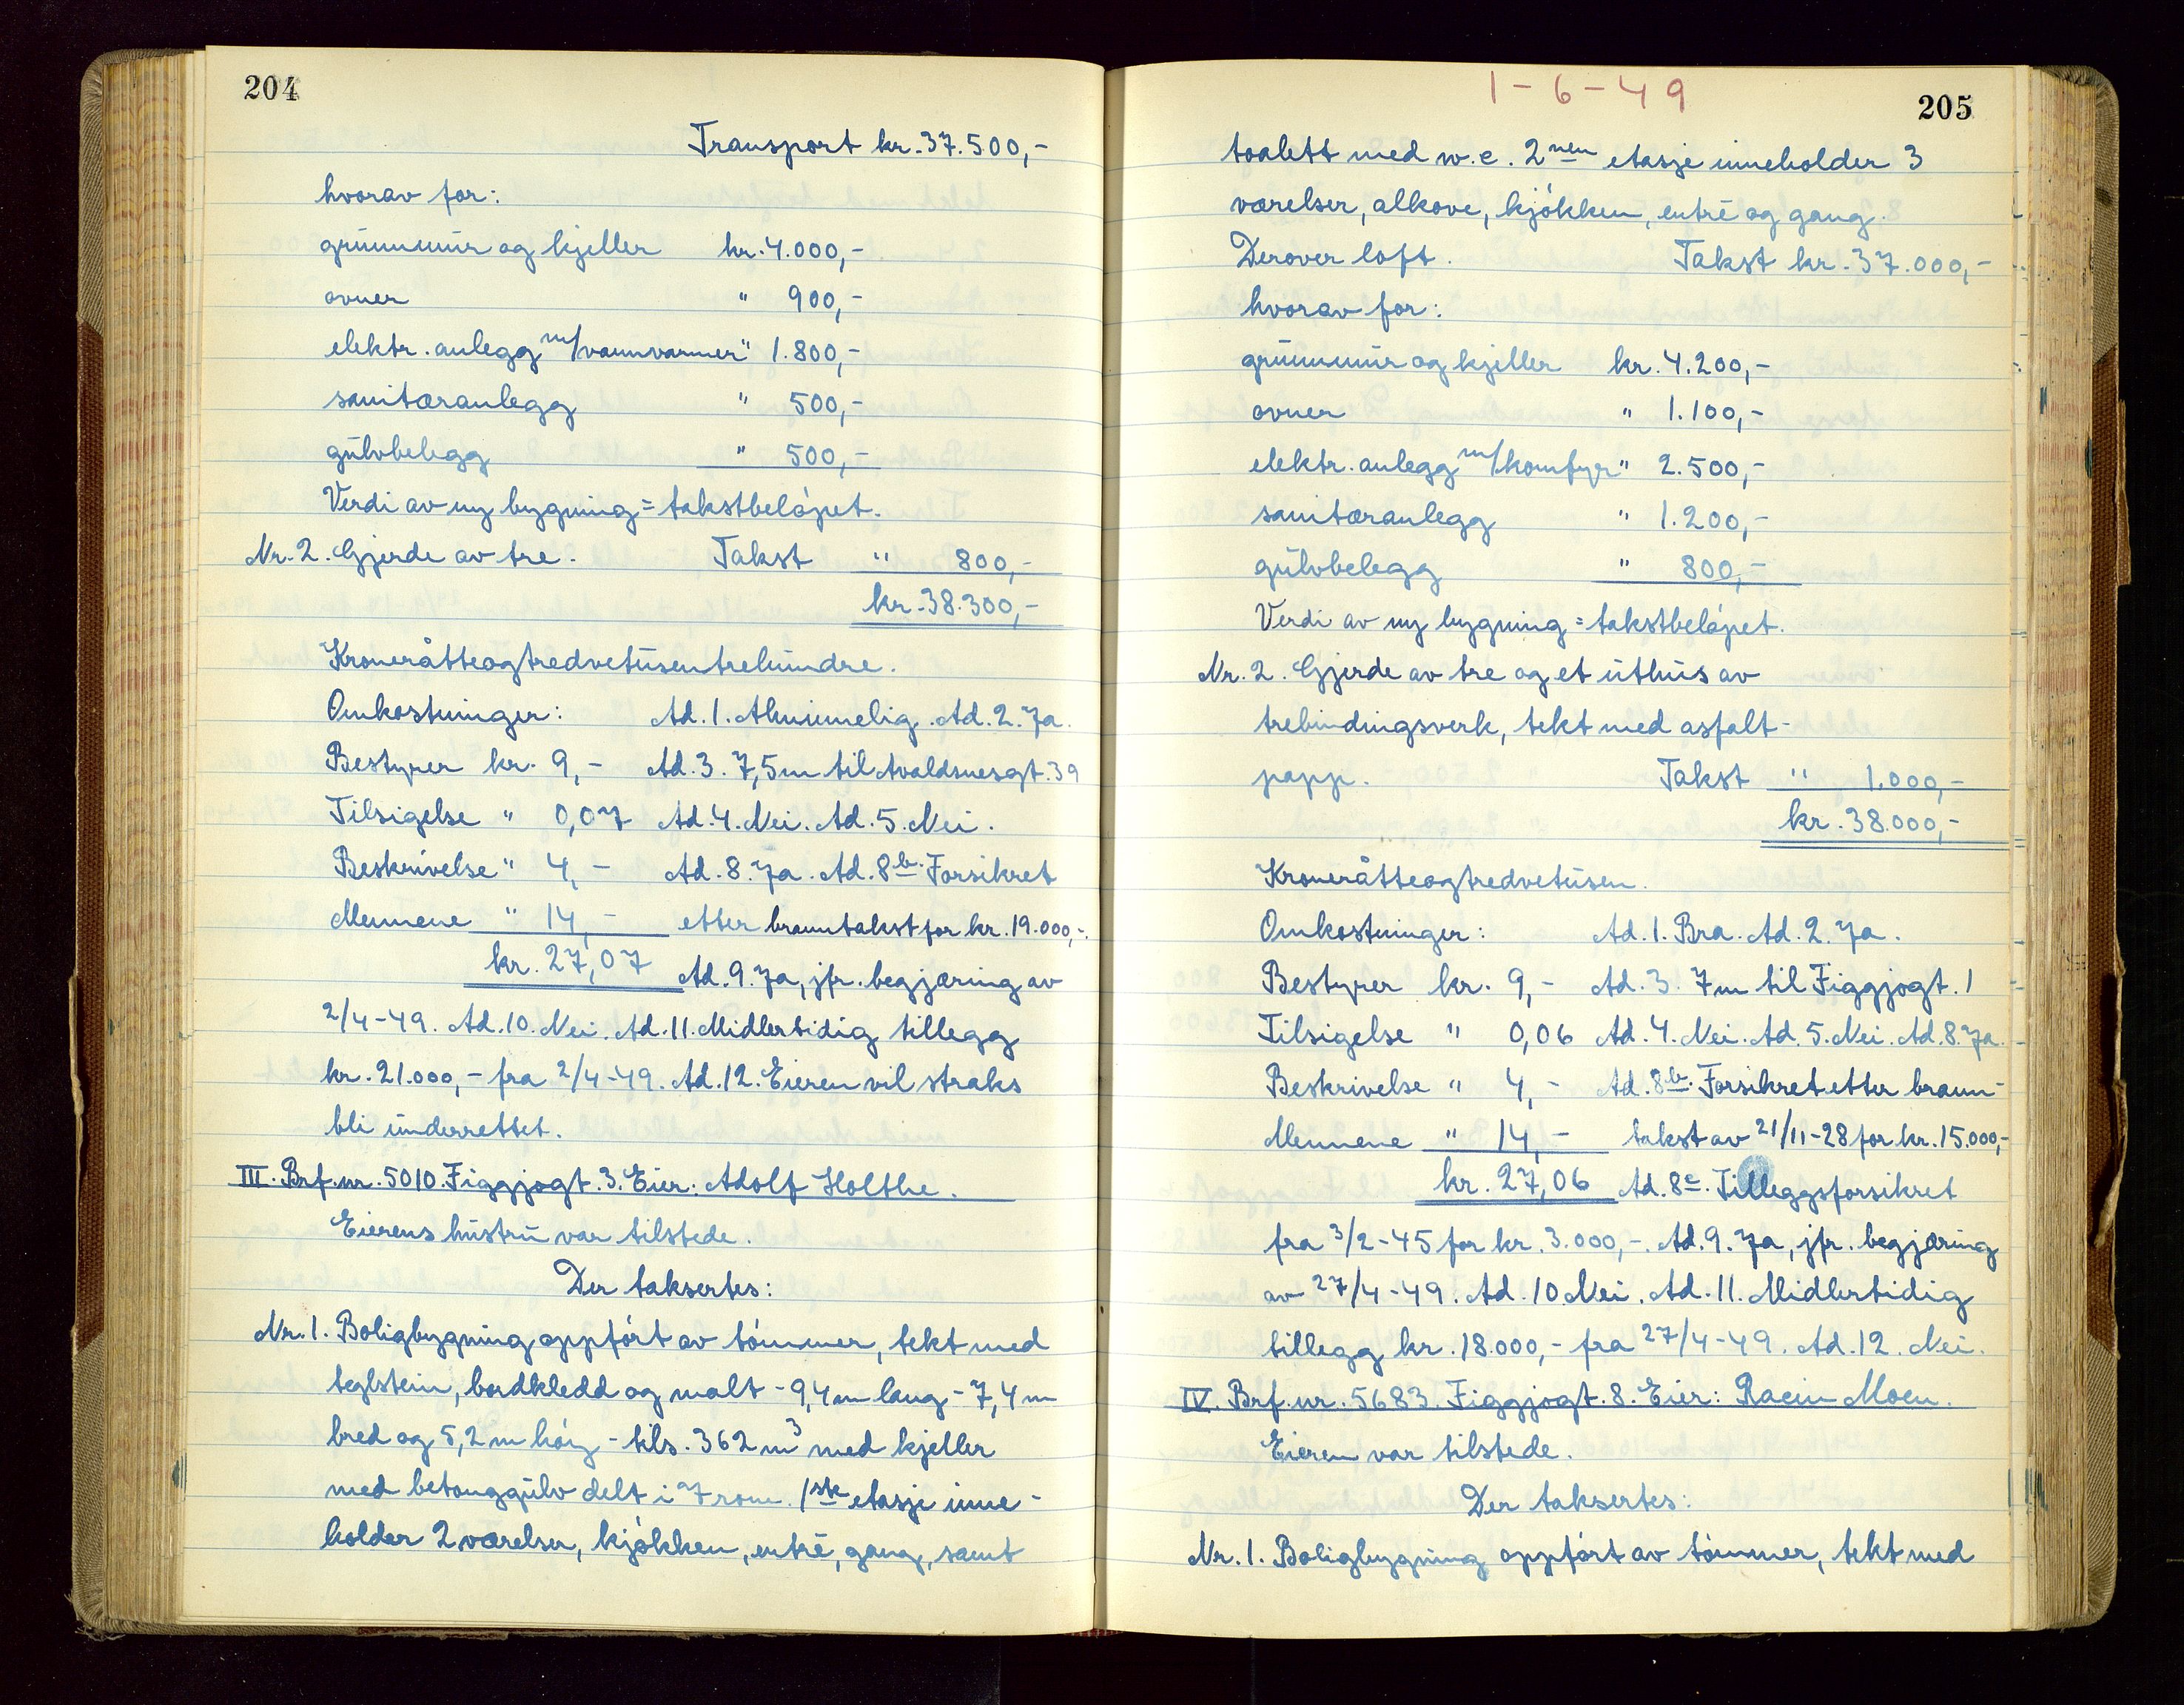 204
Transport kr. 37.500,-
hvorav for:
grunnmur og kjeller kr. 4.000,-
ovner " 900,-
elektr. anlegg m/vannvarmer " 1.800,-
sanitæranlegg " 500,-
gulvbelegg " 500,-
Verdi av ny bygning = takstbeløpet.
Nr. 2. Gjerde av tre. Takst " 800,-
kr. 38.300,-
Kroneråtteogtredvetusentrehundre.
Omkostninger: Ad. 1. Alminnelig. Ad. 2. Ja.
Bestyrer kr. 9,- Ad. 3. 7,5 m til Avaldsnesgt. 39
Tilsigelse " 0,07 Ad. 4. Nei. Ad. 5. Nei.
Beskrivelse " 4,- Ad. 8. Ja. Ad. 8b. Forsikret
Mennene " 14,- etter branntakst for kr. 19.000,-.
kr. 27,07 Ad. 9. Ja, jfr. begjæring av
2/4-49. Ad. 10. Nei. Ad. 11. Midlertidig tillegg
kr. 21.000,- fra 2/4-49. Ad. 12. Eieren vil straks
bli underrettet.
III. Brf. nr. 5010. Figgjogt. 3. Eier: Adolf Holthe.
Eierens hustru var tilstede.
Der taksertes:
Nr. 1. Boligbygning oppført av tømmer, tekt med
teglstein, bordkledd og malt - 9,4 m lang - 7,4 m
bred og 5,2 m høig - tils. 362 m³ med kjeller
med betonggulv delt i 7 rom. 1ste etasje inne-
holder 2 værelser, kjøkken, entré, gang, samt
1-6-49
205
toalett med w.c. 2nen etasje inneholder 3
værelser, alkove, kjøkken, entré og gang.
Derover loft. Takst kr. 37.000,-
hvorav for:
grunnmur og kjeller kr. 4.200,-
ovner " 1.100,-
elektr. anlegg m/komfyr " 2.500,-
sanitæranlegg " 1.200,-
gulvbelegg " 800,-
Verdi av ny bygning = takstbeløpet.
Nr. 2. Gjerde av tre og et uthus av
trebindingsverk, tekt med asfalt-
papp. Takst " 1.000,-
kr. 38.000,-
Kroneråtteogtredvetusen.
Omkostninger: Ad. 1. Bra. Ad. 2. Ja.
Bestyrer kr. 9,- Ad. 3. 7 m til Figgjogt. 1
Tilsigelse " 0,06 Ad. 4. Nei. Ad. 5. Nei. Ad. 8. Ja.
Beskrivelse " 4,- Ad. 8b. Forsikret etter brann-
Mennene " 14,- takst av 21/11-28 for kr. 15.000,-
kr. 27,06 Ad. 8c. Tilleggsforsikret
fra 3/2-45 for kr. 3.000,-. Ad. 9. Ja, jfr. begjæring
av 27/4-49. Ad. 10 Nei. Ad. 11. Midlertidig
tillegg kr. 18.000,- fra 27/4-49. Ad. 12. Nei.
IV. Brf. nr. 5683. Figgjogt. 8. Eier: Racin Moen.
Eieren var tilstede.
Der taksertes:
Nr. 1. Boligbygning oppført av tømmer, tekt med